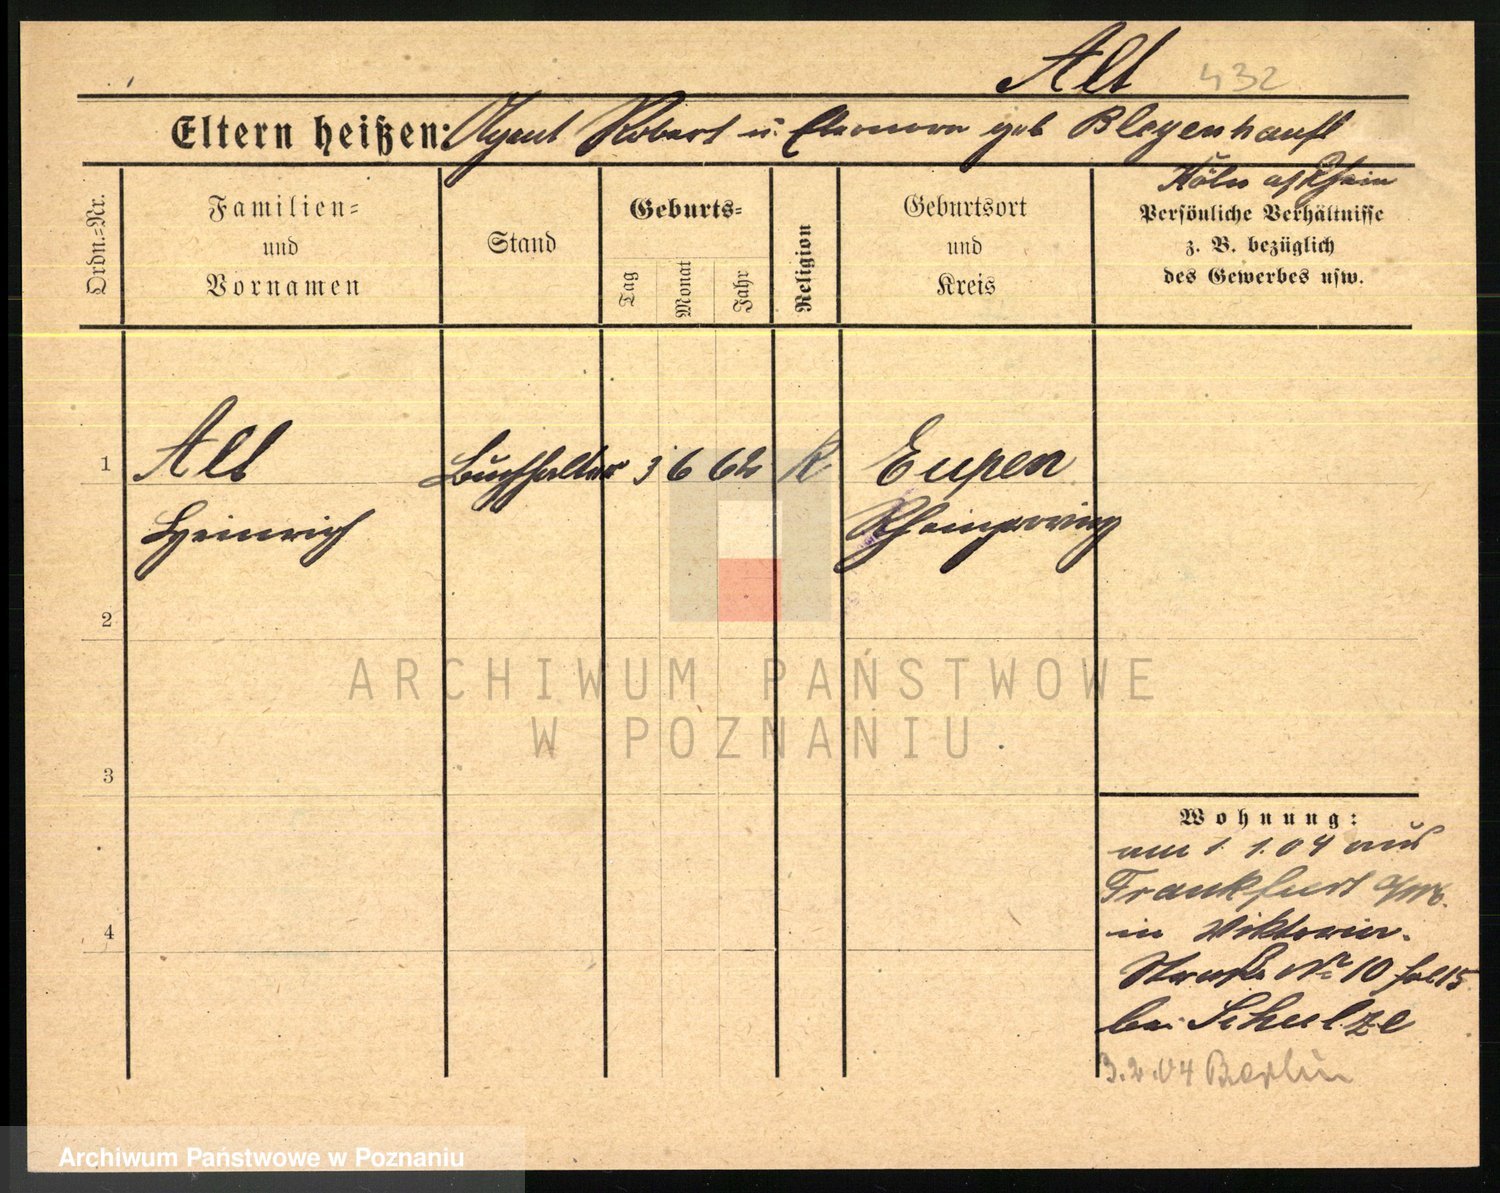 Alt 432
Eltern heißen: Agent Robert u. Eleonore geb
Köln a/Rhein
Ordn.=Nr.
Familien=
und
Vornamen
Stand
Geburts=
Tag
Monat
Jahr
Religion
Geburtsort
und
Kreis
Persönliche Verhältnisse
z. B. bezüglich
des Gewerbes usw.
1 Alt Buchhalter 3 6 62 K Eupen
Heinrich Rheinprovinz
2
ARCHIWUM PAŃSTWOWE
W POZNANIU
3
Wohnung:
am 1. 1. 04 aus
Frankfurt a/M.
4
in Viktoria-
Straße No 10
bei Schulze
3.2.04 Berlin
Archiwum Państwowe w Poznaniu